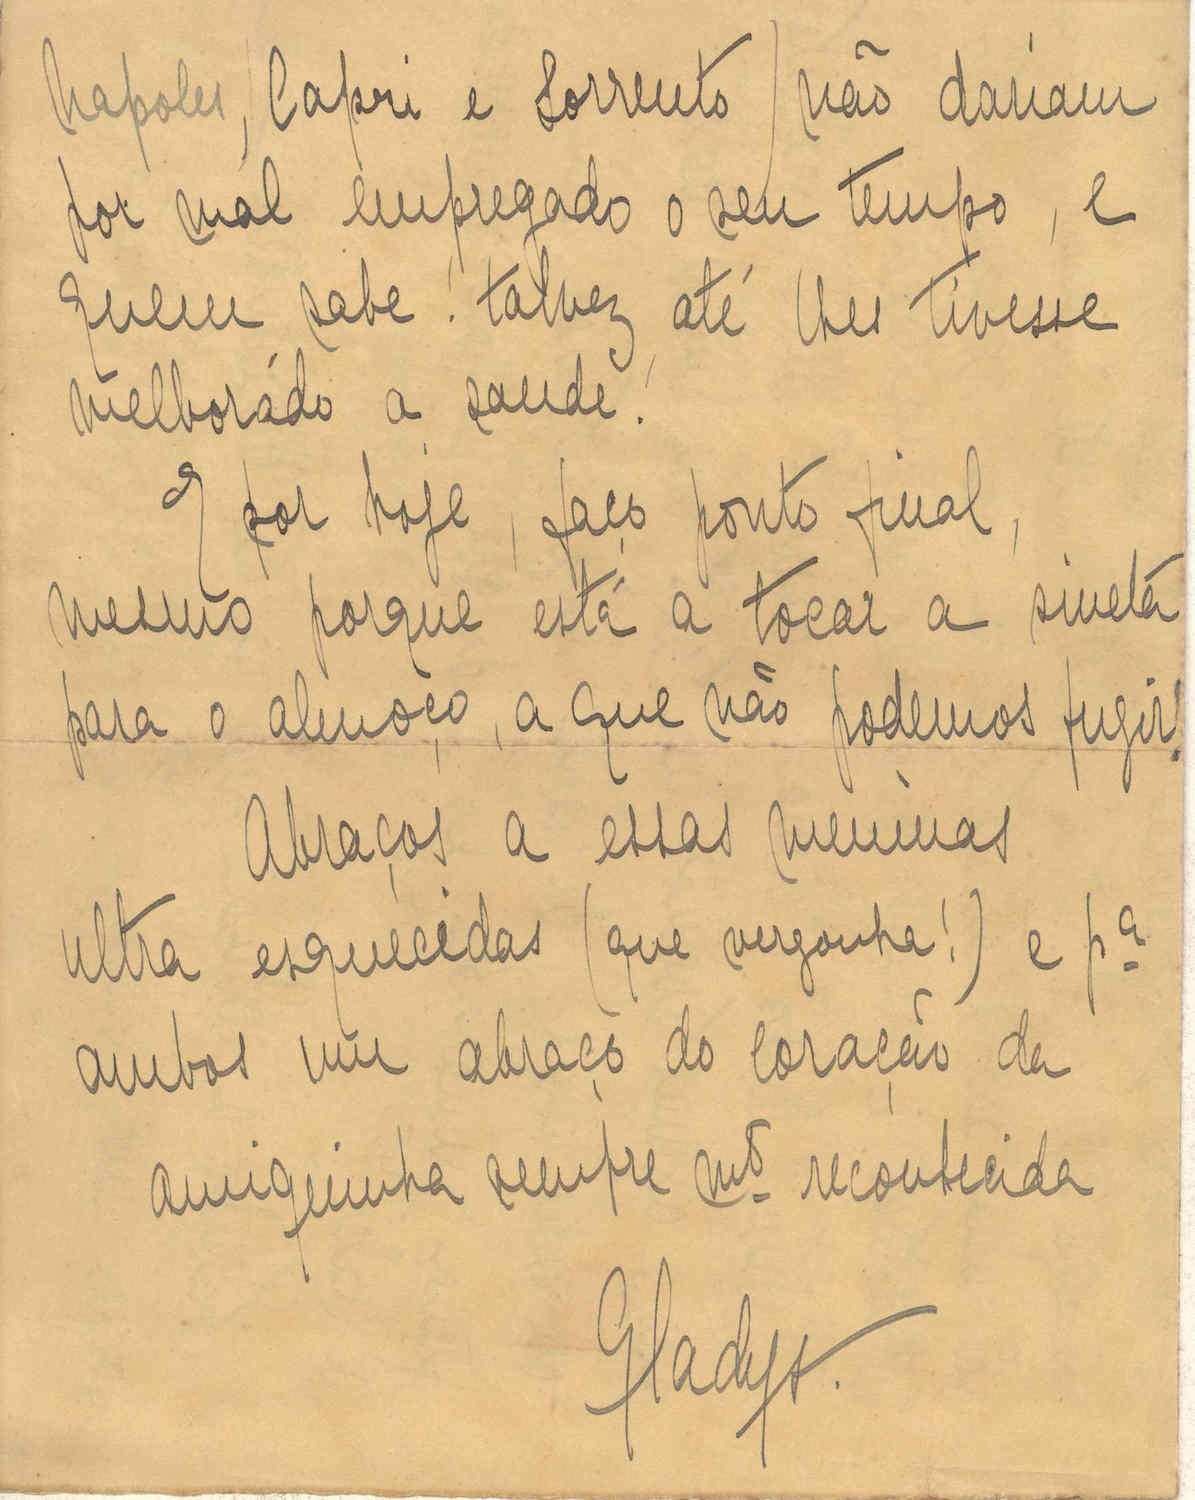 Napoles, (Capri e Sorrento) não dariam
por mál empregado o seu tempo, e
quem sabe! talvez até lhes tivesse
melhorádo a saude!
E por hoje, faço ponto final,
mesmo porque está a tocar a sinetá
para o almoço, a que não podemos fugir!
Abraços a essas meninas
ultra esquecidas (que vergonha!) e pª
ambos um abraço do coração da
amiguinha sempre mtº reconhecida
Gladys.